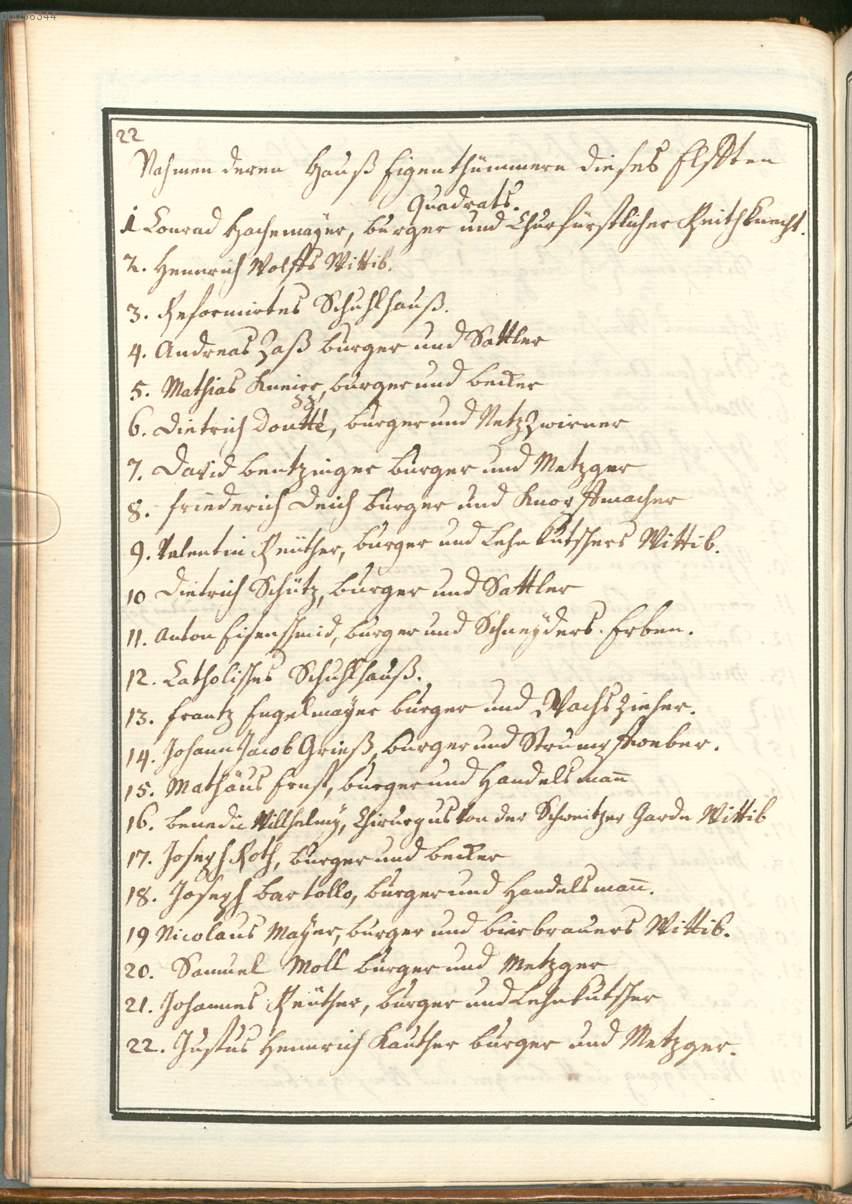 22
Nahmen deren Hauß Eigenthümmern dieses Elfften
Quadrats.
1 Conrad Hachemaÿer, burger und Churfürstlicher Reithknecht.
2. Hennrich Wolffs Wittib.
3. Reformirtes Schuhlhauß.
4. Andreas Zaß burger und Sattler
5. Mathias Kneirr, burger und becker
6. Dietrich Doutté, burger und Netz Zwirner
7. David bentzinger burger und Metzger
8. friederich Deich burger und Knopffmacher
9. Valentin Reüther, burger und Lehnkutschers Wittib.
10 Dietrich Schütz, burger und Sattler
11. Anton Eisenschmid, burger und Schneÿders Erben.
12. Catholisches Schuhlhauß.
13. frantz Engelmaÿer burger und Wachs Zieher.
14. Johann Jacob Grieß, burger und Strumpffweber.
15. Mathäus Ernst, burger und Handelsmann
16. benedic Willhelmÿ, Chirurgus von der Schweitzer Garde Wittib
17. Joseph Roth, burger und becker
18. Joseph bartollo, burger und Handelsmann.
19 Nicolaus Maÿer, burger und bierbrauers Wittib.
20. Samuel Moll burger und Metzger
21. Johannes Reüther, burger und Lehnkutscher
22. Justus Hennrich Kauther burger und Metzger.